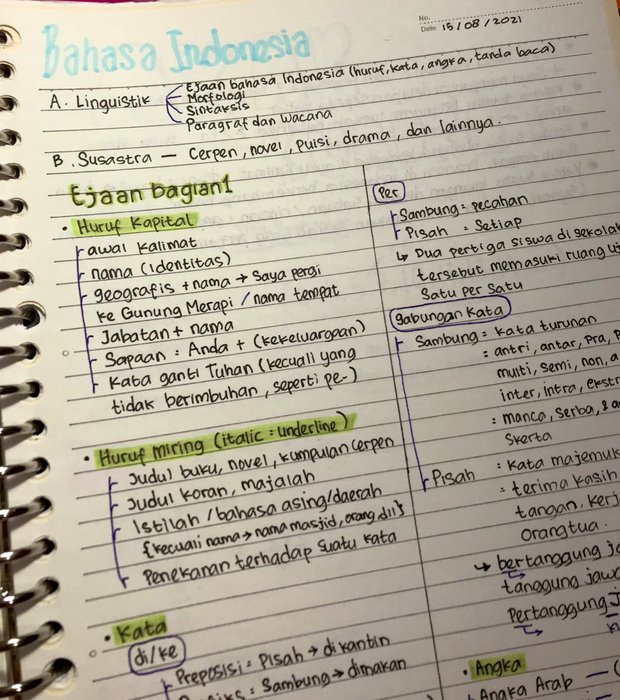 No.
Date 15/08/2021
Bahasa Indonesia
A. Linguistik
Ejaan bahasa Indonesia (huruf, kata, angka, tanda baca)
Morfologi
Sintaksis
Paragraf dan Wacana
B. Susastra — Cerpen, novel, puisi, drama, dan lainnya.
Ejaan bagian 1
• Huruf Kapital
awal kalimat
nama (identitas)
geografis + nama → Saya pergi
ke Gunung Merapi / nama tempat
Jabatan + nama
Sapaan : Anda + (kekeluargaan)
Kata ganti Tuhan (kecuali yang
tidak berimbuhan, seperti pe-)
• Huruf miring (italic = underline)
Judul buku, novel, kumpulan cerpen
Judul koran, majalah
Istilah / bahasa asing/daerah
{kecuali nama → nama masjid, orang dll}
Penekanan terhadap suatu kata
• Kata
di/ke
Preposisi = Pisah → di kantin
= Sambung → dimakan
Per
Sambung = pecahan
Pisah = Setiap
↳ Dua pertiga siswa di sekolah
tersebut memasuki ruang
Satu per satu
Gabungan Kata
Sambung = Kata turunan
= antri, antar, pra, P
multi, semi, non, a
inter, intra, ekstr
= manca, serba,
Skerta
Pisah = Kata majemuk
= terima kasih
tangan, kerj
orangtua.
↳ bertanggung ja
tanggung jawa
Pertanggung j
• Angka
Angka Arab — (